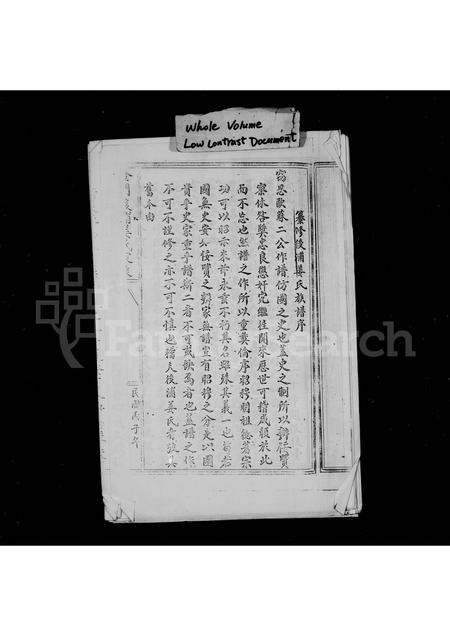 Whole Volume
Low Contrast Document
纂修後浦姜氏族譜序
窃思歐蘇二公作譜仿國之史也蓋史之制所以辨佞賢
寀休咎獎忠良懲奸宄繼往開來歷世可稽咸賴於此
而不忘也然譜之作所以重彝倫序昭穆明祖德著宗
功可以昭示來許永垂不朽其名雖殊其義一也苟若
國無史安分佞賢之辨家無譜豈有昭穆之分是以國
貴乎史家重乎譜斯二者不可或缺為者也蓋譜之作
不可不謹修之亦不可不慎也稽夫後浦姜氏者其
舊本由
FamilySearch